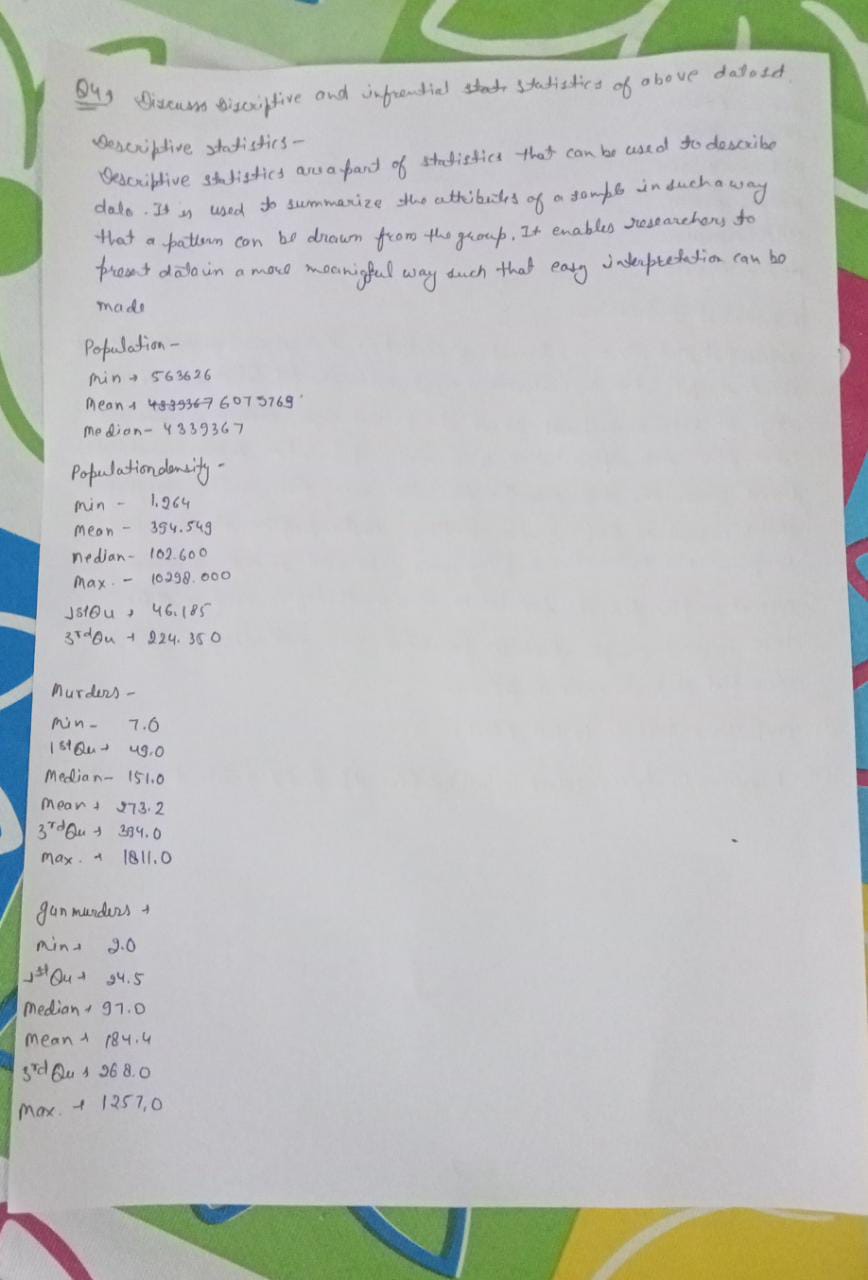 Q4, Discuss Discriptive and infrential stat statistics of above dataset.
Descriptive statistics -
Descriptive statistics are a part of statistics that can be used to describe
data. It is used to summarize the attributes of a sample in such a way
that a pattern can be drawn from the group. It enables researchers to
present data in a more meaningful way such that easy interpretation can be
made
Population -
Min → 563626
Mean → 4339367 6075769
Median - 4339367
Population density -
min - 1.264
mean - 354.549
median - 102.600
Max. - 10298.000
1stQu → 46.185
3rdQu → 224.350
Murders -
Min - 7.0
1stQu → 49.0
Median - 151.0
Mean → 273.2
3rdQu → 394.0
Max. → 1811.0
gun murders →
Min → 2.0
1stQu → 24.5
Median → 97.0
Mean → 184.4
3rdQu → 268.0
Max. → 1257.0